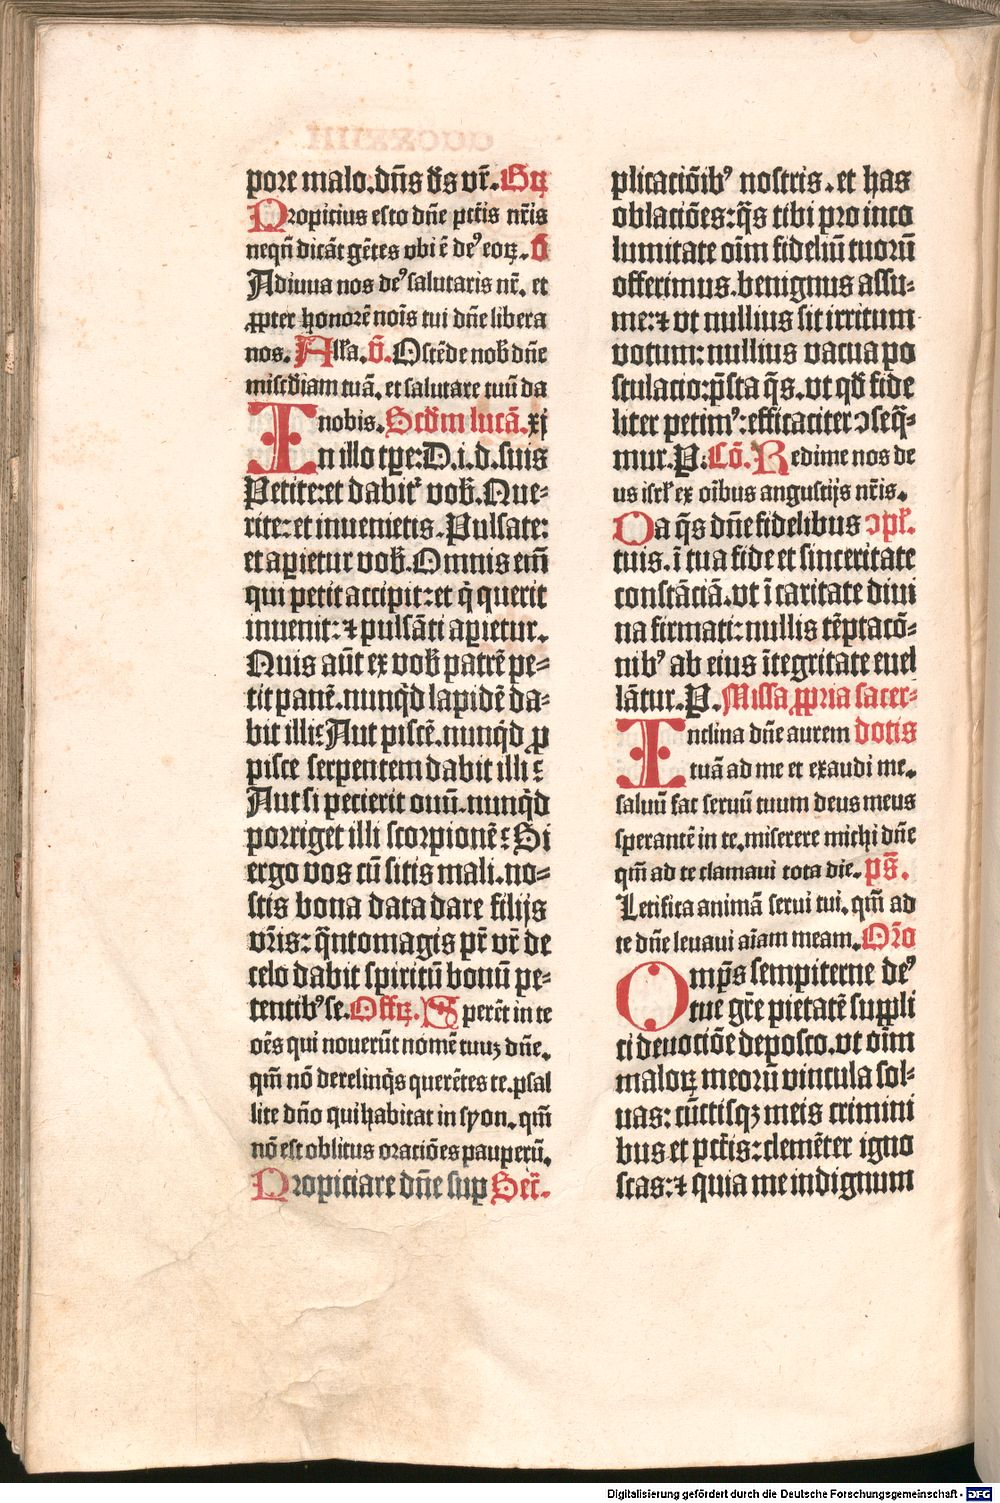 pore malo.dn̄s d̄s vr̄.Gꝛ
Propicius esto dn̄e pctīs nr̄is
nequn̄ dicāt gētes vbi ē deꝰ eoꝝ.v̄
Adiuua nos deꝰ salutaris nr̄. et
ꝓpter honorē noīs tui dn̄e libera
nos. All'a. v̄. Ostēde nob̄ dn̄e
misc̄diam tuā. et salutare tuū da
nobis. Scd̄m lucā.xj
In illo tp̄e:D.i.d.suis
Petite:et dabitᷣ vob̄.Que-
rite:et inuenietis.Pulsate:
et apietur vob̄.Omnis em̄
qui petit accipit:et q̇ querit
inuenit:⁊ pulsāti apietur.
Quis aūt ex vob̄ patrē pe-
tit panē.nunq̇d lapidē da-
bit illi:Aut piscē.nunq̇d ꝓ
pisce serpentem dabit illi:
Aut si pecierit ouū.nunq̇d
porriget illi scorpionē:Si
ergo vos cū sitis mali.no-
stis bona data dare filijs
vr̄is:q̄ntomagis pr̄ vr̄ de
celo dabit spiritū bonū pe-
tentibꝰ se.Offꝝ. Sperēt in te
oēs qui nouerūt nomē tuuꝫ dn̄e.
qm̄ nō derelinq̇s querētes te.psal
lite dn̄o qui habitat in syon.qm̄
nō est oblitus oratiōes pauperū.
Propiciare dn̄e sup Secr̄.
plicaciōibꝰ nostris.et has
oblaciōes:q̄s tibi pro inco
lumitate oīm fideliū tuorū
offerimus.benignus assu-
me:⁊ vt nullius sit irritum
votum:nullius vacua po
stulacio:p̄sta q̄s.vt qd̄ fide
liter petimꝰ:efficaciter ↄseq̄-
mur.P:Cō.Redime nos de
us isrl̄ ex oībus angustijs nr̄is.
Da q̄s dn̄e fidelibus ↄpl̄.
tuis.ī tua fide et sinceritate
constāciā.vt ī caritate diui
na firmati:nullis tēptacō-
nibꝰ ab eius ītegritate euel
lātur.P.Missa ꝓpria sacer-
Inclina dn̄e aurem dotis
tuā ad me et exaudi me.
saluū fac seruū tuum deus meus
sperantē in te.miserere michi dn̄e
qm̄ ad te clamaui tota die. ps̄.
Letifica animā serui tui.qm̄ ad
te dn̄e leuaui aīam meam.Or̄o
Omps̄ sempiterne deꝰ
tue gr̄e pietatē suppli
ci deuociōe deposco.vt oīm
maloꝝ meorū vincula sol-
uas:cūctisqꝫ meis crimini
bus et pctīs:clemēter igno
scas:⁊ quia me indignum
Digitalisierung gefördert durch die Deutsche Forschungsgemeinschaft - DFG